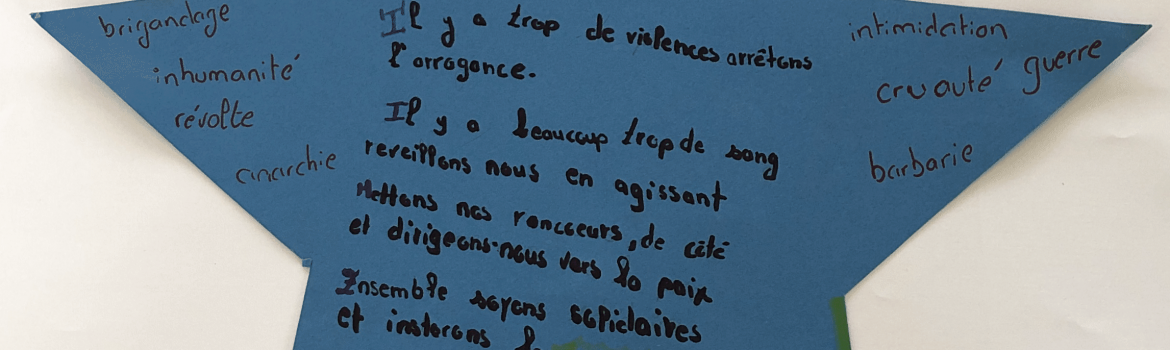 brigandage
inhumanité
révolte
anarchie
Il y a trop de violences arrêtons
l'arrogance.
Il y a beaucoup trop de sang
reveillons nous en agissant
Mettons nos rancoeurs, de côté
et dirigeons-nous vers la paix
Ensemble soyons solidaires
et instorons
intimidation
cruauté guerre
barbarie